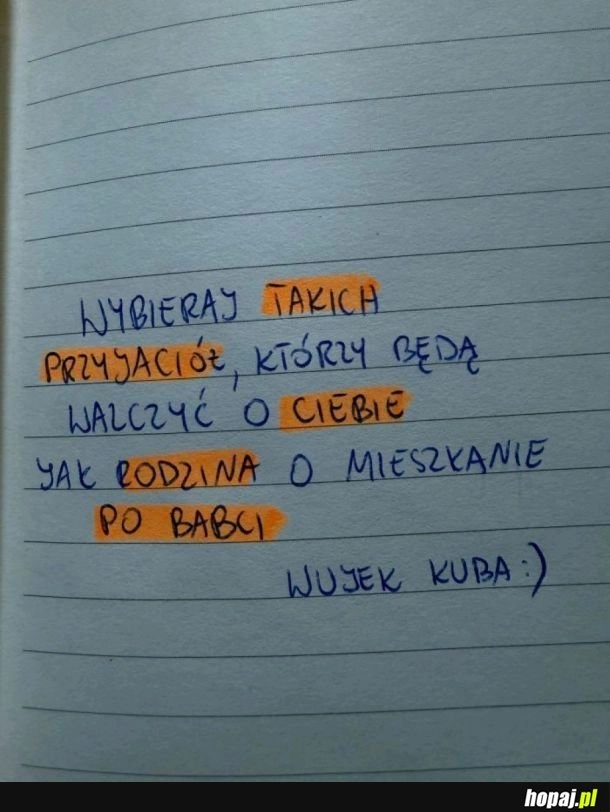 WYBIERAJ TAKICH
PRZYJACIÓŁ, KTÓRZY BĘDĄ
WALCZYĆ O CIEBIE
JAK RODZINA O MIESZKANIE
PO BABCI
WUJEK KUBA:)
hopaj.pl